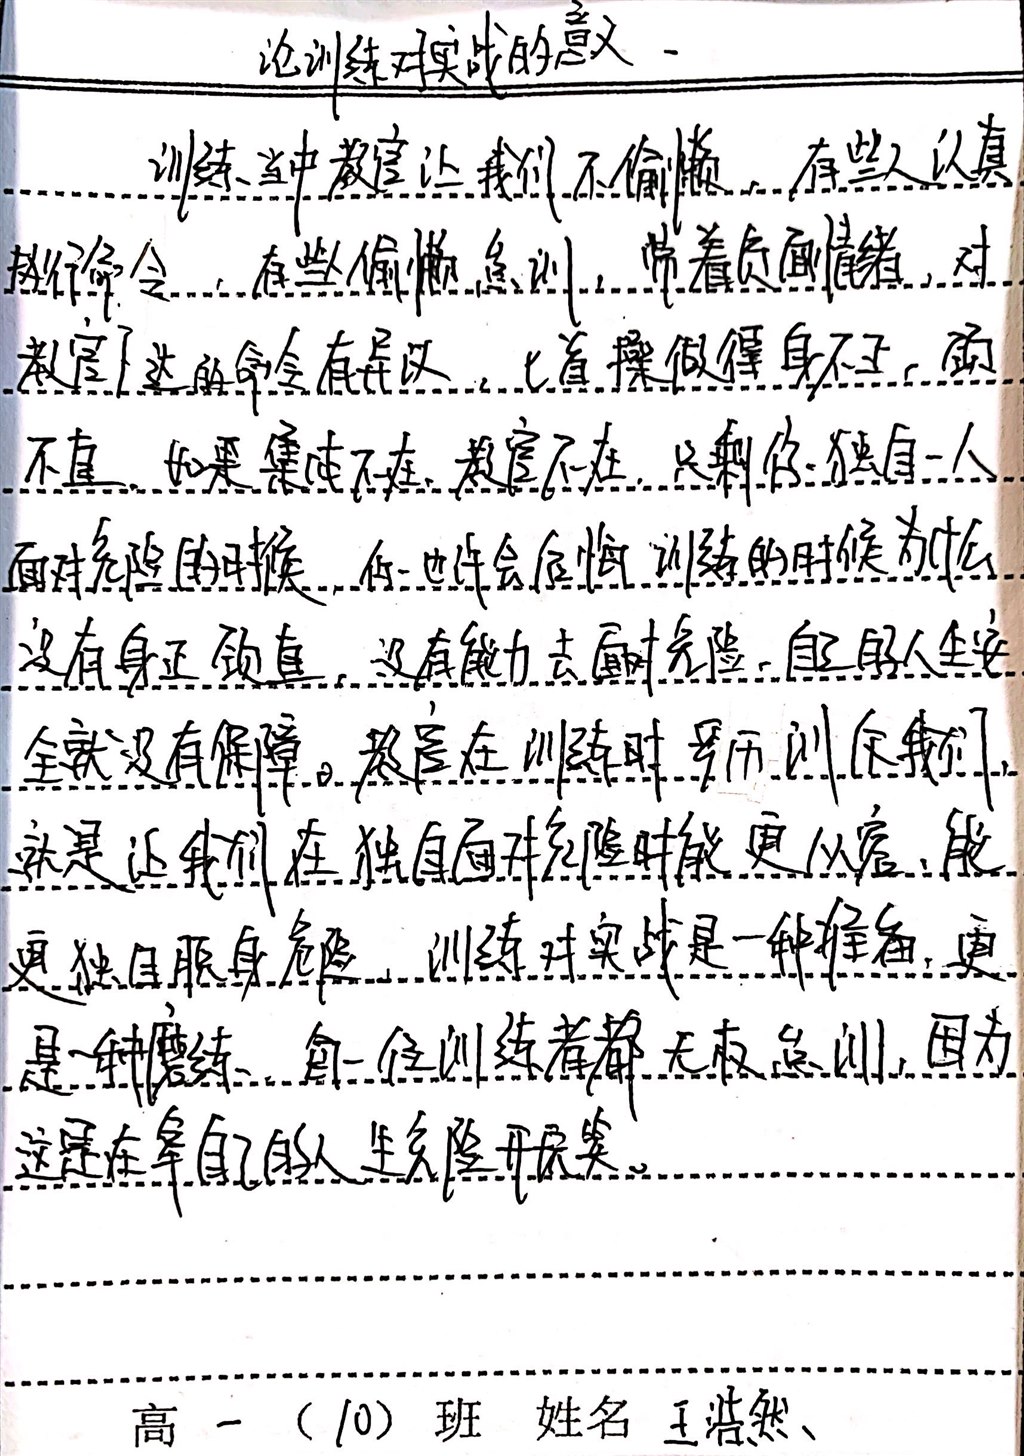 论训练对实战的意义
训练当中教官让我们不偷懒，有些人认真
执行命令，有些偷懒怠训，带着负面情绪，对
教官下达的命令有异议，匕首操做得身不正，颈
不直，如果集体不在，教官不在，只剩你独自一人
面对危险的时候，你也许会后悔训练的时候为什么
没有身正颈直，没有能力去面对危险，自己的人生安
全就没有保障。教官在训练时严历训斥我们，
就是让我们在独自面对危险时能更从容，能
更独自脱身危险，训练对实战是一种准备，更
是一种磨练，每一位训练者都无权怠训，因为
这是在拿自己的人生危险开玩笑。
高一（10）班 姓名 王浩然